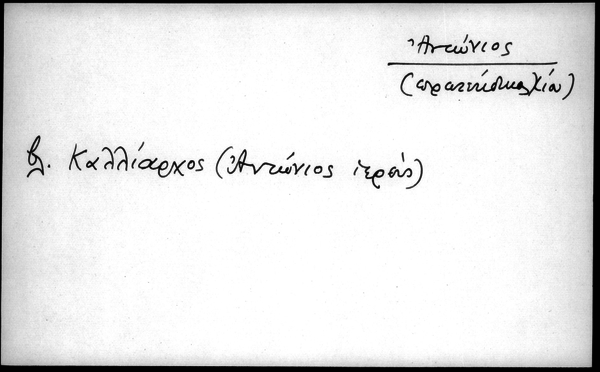 Ἀντώνιος
Χίου)
βλ. Καλλίαρχος (Ἀντώνιος ἱερεύς)